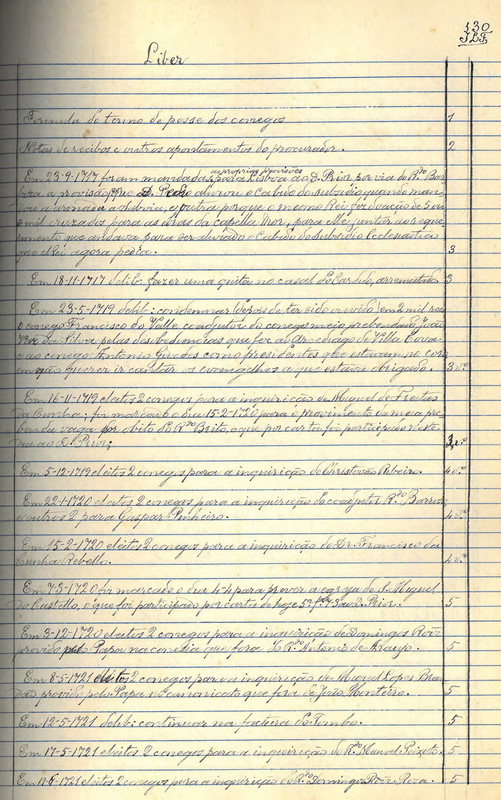 130
Liber
Formula do termo de posse dos conegos 1
Notas de recibos e outros apontamentos do procurador. 2
Em 23-9-1717 foram mandadas para Lisboa ao D. Prior por via do Rdo Bar
D. Pedro aliviou o Cabido do subsidio quando man
e outra porque o mesmo Rei fez doação de 5 ou
mil cruzados para as obras da capella mór, para
mento que andava para ser aliviado o Cabido do Subsidio Ecclesiastico
que o Rei agora pedia. 3
Em 18-11-1717 delib: fazer uma quita no casal do Cardido, arrematado. 3
Em 23-5-1719 delib: condemnar (depois de ter sido ouvido) em 2 mil reis
o conego Francisco do Valle coadjutor do conego meio prebendado João
da Silva pelas desobediencias que fez ao Arcediago de Villa Cova
e ao conego Antonio Guedes como presidentes q̃ do estavam no coro
em não querer ir cantar os evangelhos a que estava obrigado. 3 vº
Em 16-11-1719 eleitos 2 conegos para a inquirição de Miguel de Freitas
da Cunha; foi marcado o dia 15-2-1720 para o provimento da meia pre
benda vaga por obito do Rdo Brito, o que por carta foi participado n'este
dia ao D. Prior; 3 vº
Em 5-12-1719 eleitos 2 conegos para a inquirição de Christovão Ribeiro. 4 vº
Em 22-1-1720 eleitos 2 conegos para a inquirição do coadjutor Rdo Barros
e outros 2 para Gaspar Pinheiro. 4 vº
Em 15-2-1720 eleitos 2 conegos para a inquirição do Dr. Francisco da
Cunha Rebello. 4 vº
Em 7-3-1720 foi marcado o dia 4-4 para prover a egreja de S. Miguel
do Castello, o que foi participado por carta de hoje ao D. Prior. 5
Em 3-12-1720 eleitos 2 conegos para a inquirição de Domingos Roiz
provido pelo Papa na conesia que fora do Rdo Antonio de Araujo. 5
Em 8-5-1721 eleitos 2 conegos para a inquirição de Miguel Lopes Bran
dão provido pelo Papa no canonicato que fora de João Monteiro. 5
Em 12-5-1721 delib: continuar na factura do Tombo. 5
Em 17-5-1721 eleitos 2 conegos para a inquirição do Rdo Manoel Peixoto. 5
Em 19-5-1721 eleitos 2 conegos para a inquirição do Rdo Domingos Roiz 5